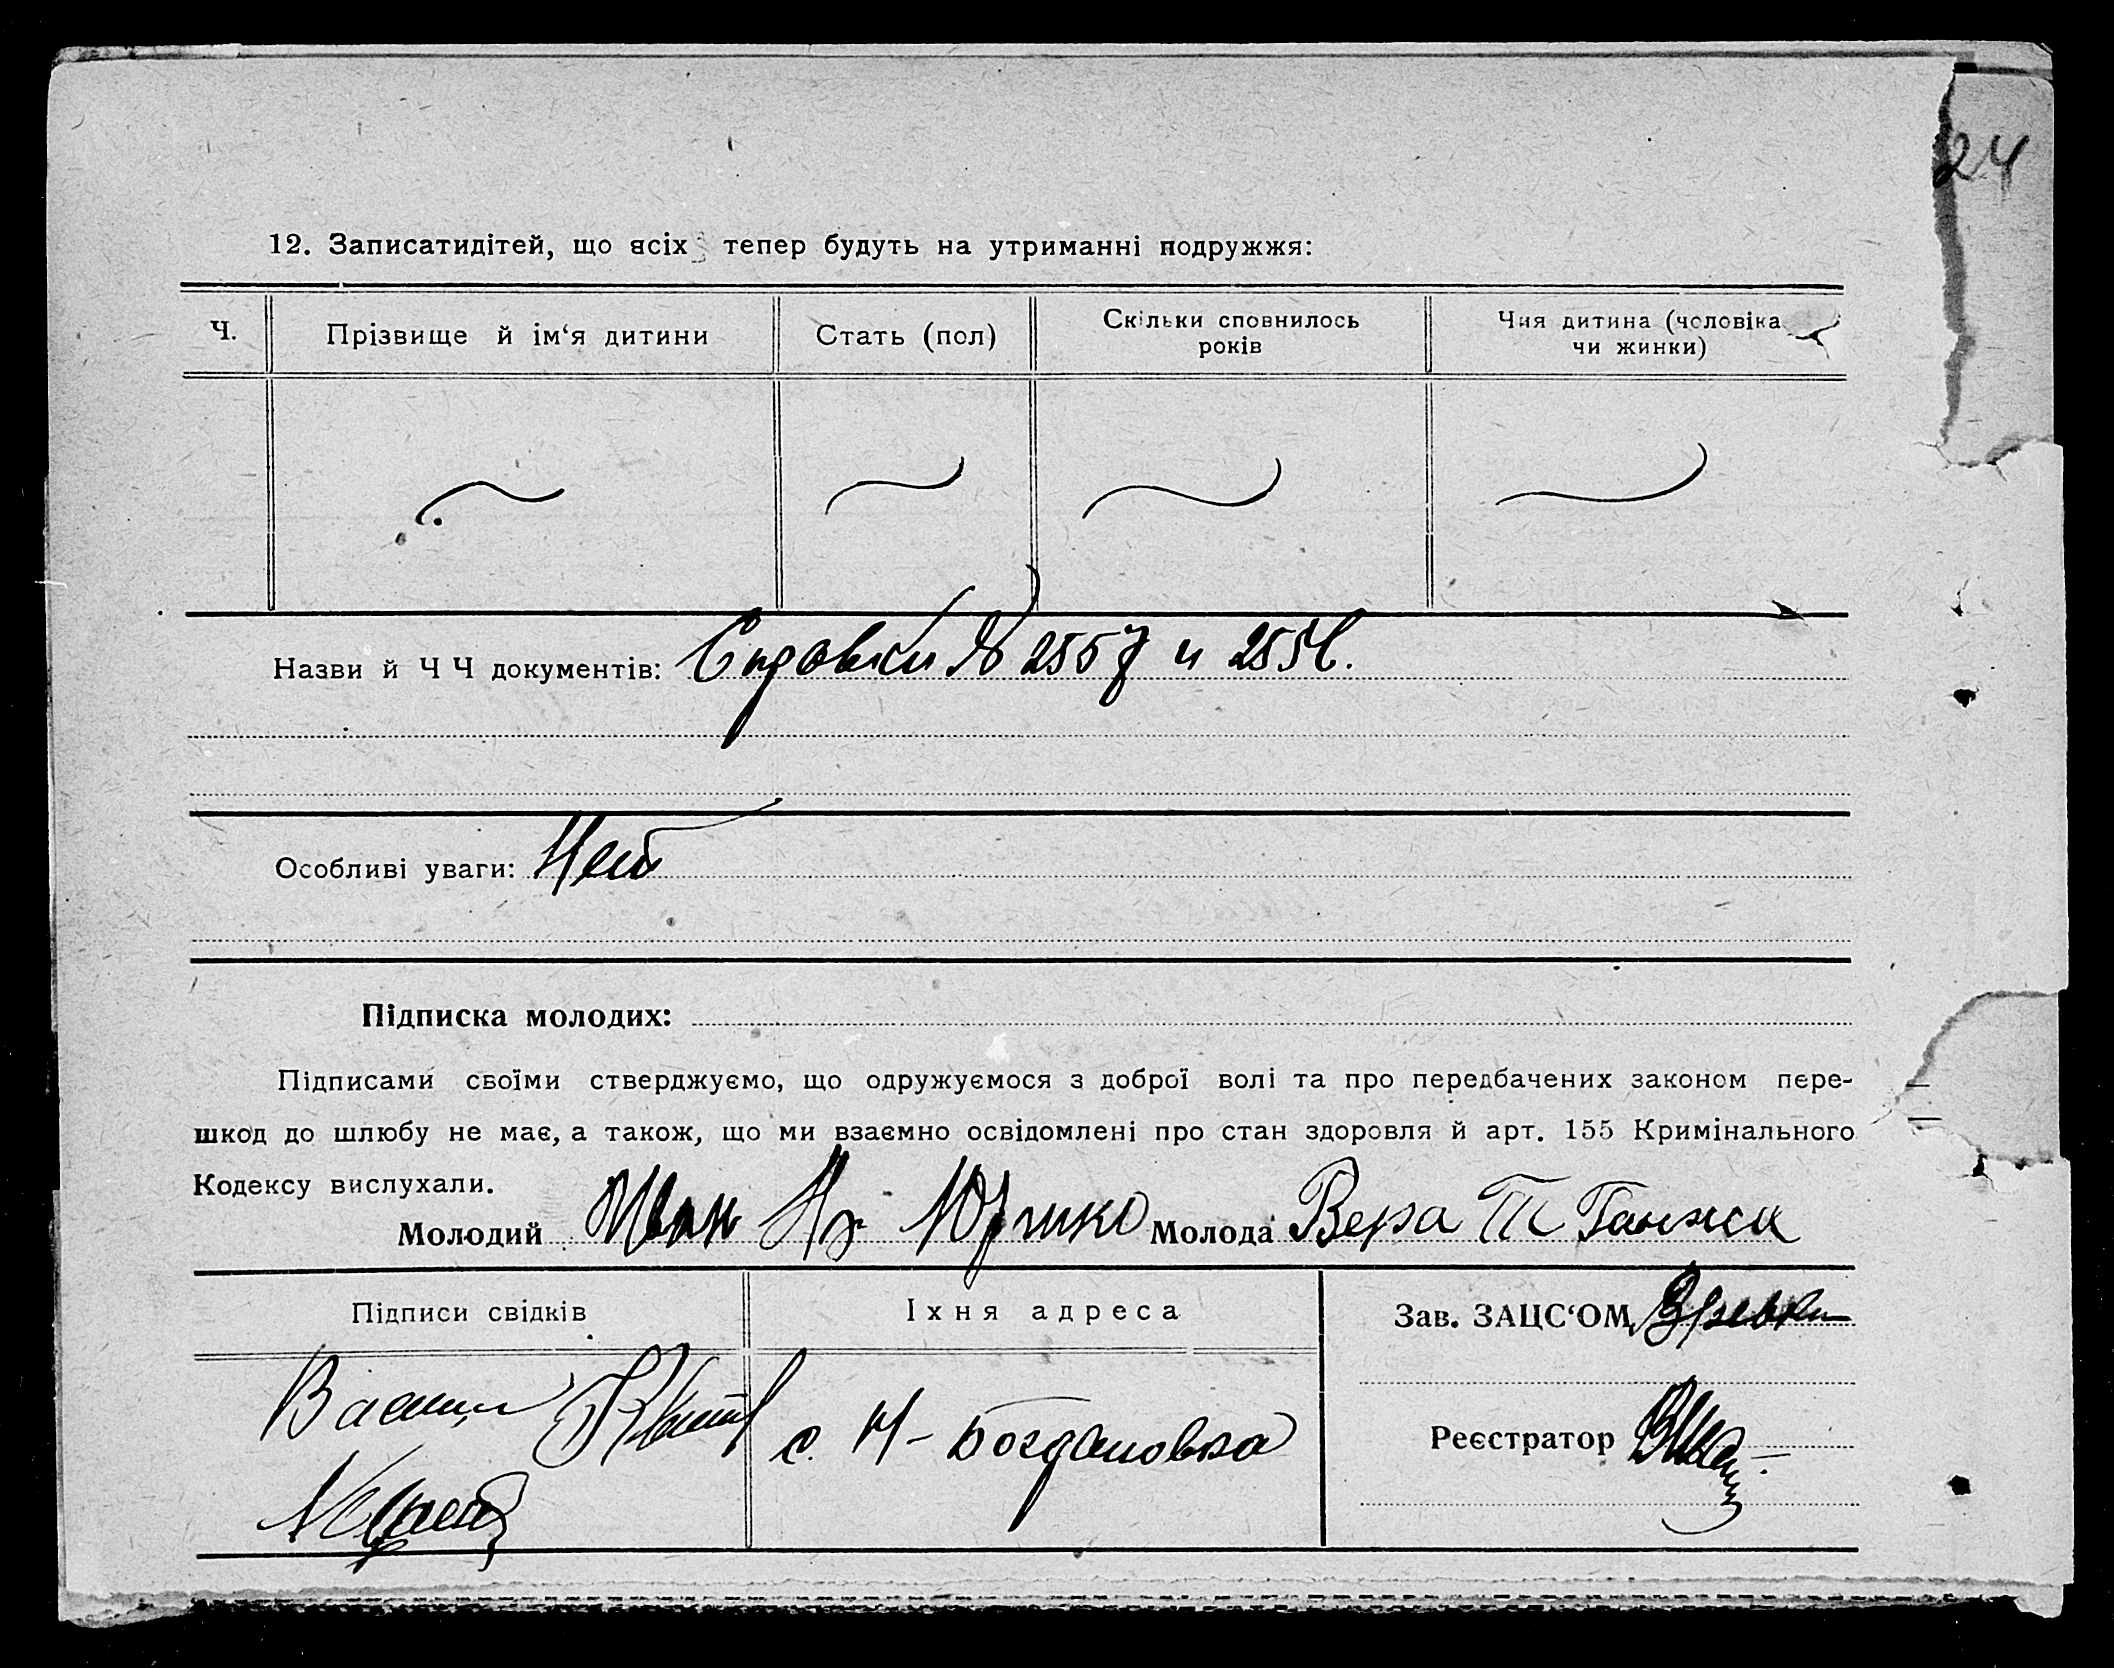 24
12. Записатидітей, що всіх тепер будуть на утриманні подружжя:
Ч. Прізвище й ім‘я дитини Стать (пол) Скільки сповнилось років Чия дитина (чоловіка чи жинки)
Назви й Ч Ч документів: № 2557 и 2554.
Особливі уваги: Нет
Підписка молодих:
Підписами своїми стверджуємо, що одружуємося з доброї волі та про передбачених законом пере-
шкод до шлюбу не має, а також, що ми взаємно освідомлені про стан здоровля й арт. 155 Кримінального
Кодексу вислухали.
Молодий Иван Юрчико Молода Вера Т Ганжа
Підписи свідків Їхня адреса Зав. ЗАЦС‘ОМ
Васил
с. Н-Богдановка
Реєстратор